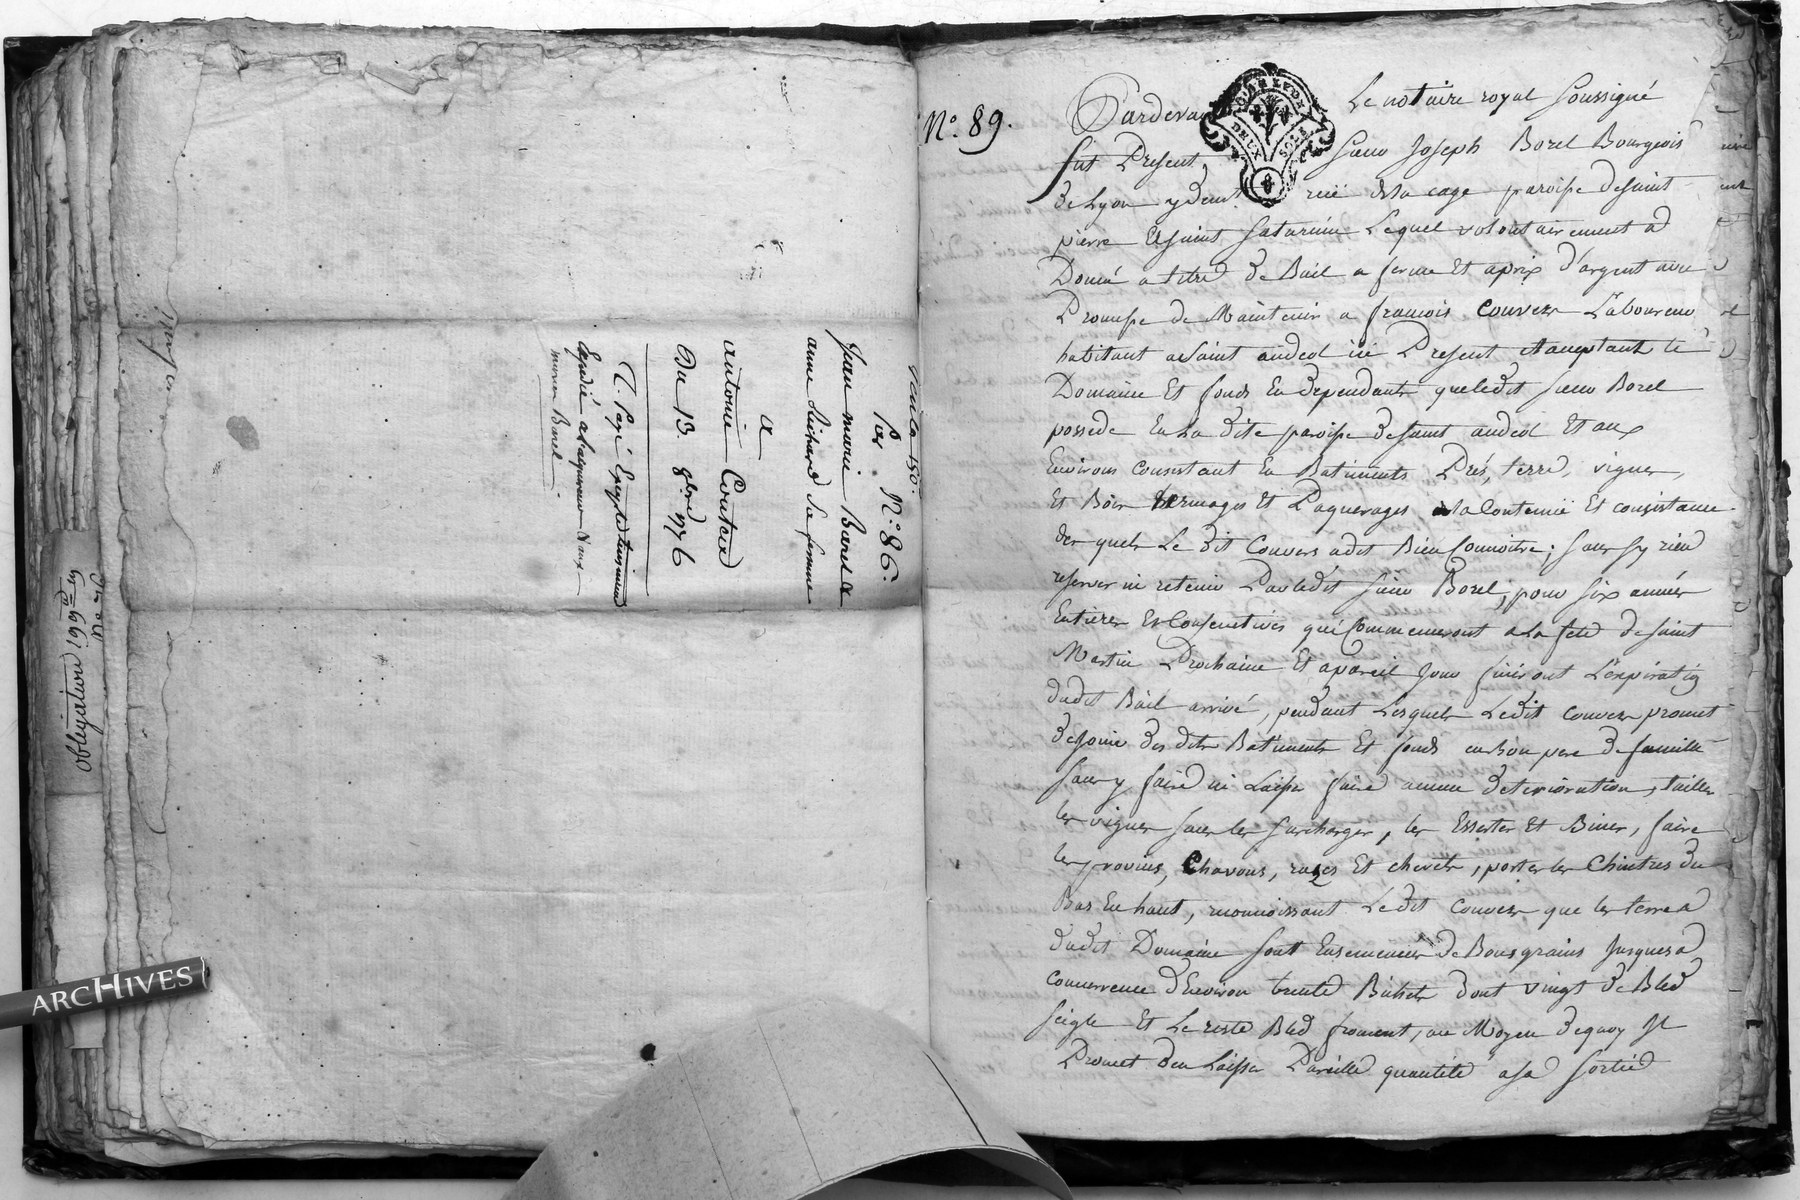 N.° 86.
Jean marie Barel &
anne Richard Sa femme
a
antoine Coutard
Du 13. 8bre 1776
marin Barel
ARCHIVES
N.° 89.
GEN DE LYON
DEUX SOLS
Pardevant Le notaire royal Soussigné
fut Present, Sieur Joseph Borel Bourgeois
de Lyon y demt rue de la cage paroisse de saint
pierre et saint Saturnin Lequel volontairement a
Donné a titre de Bail a ferme Et a prix d'argent avec
Promesse de Maintenir a francois Couvers Laboureur
habitant a saint andeol ici Present et acceptant le
Domaine Et fonds En dependants que ledit sieur Borel
possede En La dite paroisse de saint andeol Et aux
Environs Consistant En Batiments Prés, terre, vignes,
Et Bois hermages Et Paquerages de la Contenüe Et consistance
des quels Le dit Couvers a dit Bien Connoitre; sans s'y rien
reserver ni retenir Par ledit sieur Borel, pour six années
Entieres Et Consecutives qui Commenceront a La fete de saint
Martin Prochaine Et a pareil Jour finiront L'expiration
dudit Bail arrivé, pendant Lesquels Ledit Couvers promet
de Jouir des dits Batiments Et fonds en bon pere de famille
sans y faire ni Laisser faire aucune deterioration, tailler
les vignes sans les surcharger, les Esserter Et Biner, faire
les provins, Chavons, razes Et chevets, porter les Chintres du
Bas En haut, reconnoissant Ledit Couvers que les terres
dudit Domaine sont Ensemencées de Bons grains Jusques a
Concurrence d'Environ trente Bichets dont vingt de Bled
seigle Et Le reste Bled froment, au Moyen de quoy Il
Promet d'en Laisser Pareille quantité a sa sortie